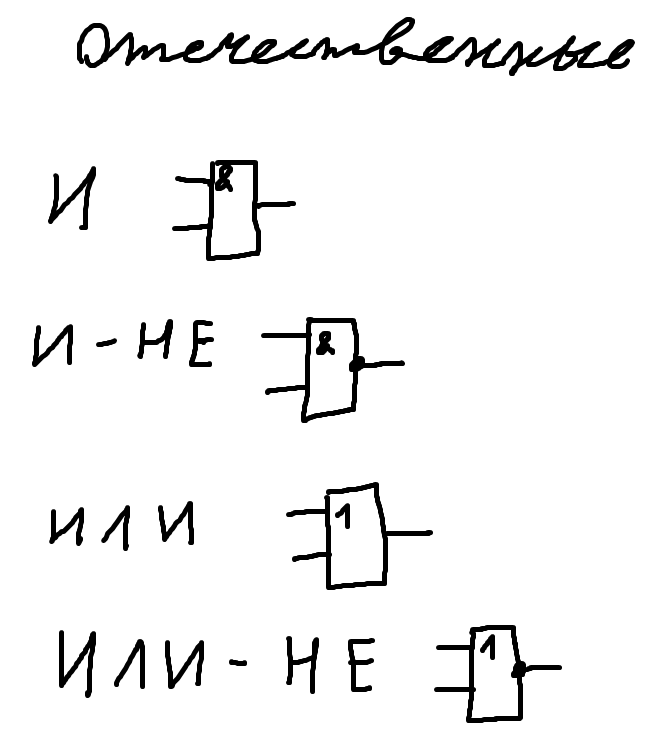 Отечественные
И &
И-НЕ &
ИЛИ 1
ИЛИ-НЕ 1